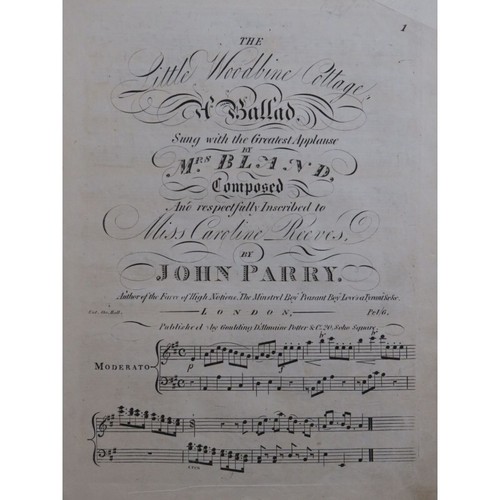 1
THE
Little Woodbine Cottage,
A Ballad,
Sung with the Greatest Applause
BY
MRS BLAND,
Composed
And respectfully Inscribed to
Miss Caroline Reeves,
BY
JOHN PARRY.
Author of the Farce of High Notions, The Minstrel Boy, Peasant Boy, Love's a Tyrant &c &c.
Ent. Sta. Hall. LONDON, Pr. 1/6.
Published by Goulding D'Almaine Potter & Co. 20, Soho Square.
MODERATO
p
f